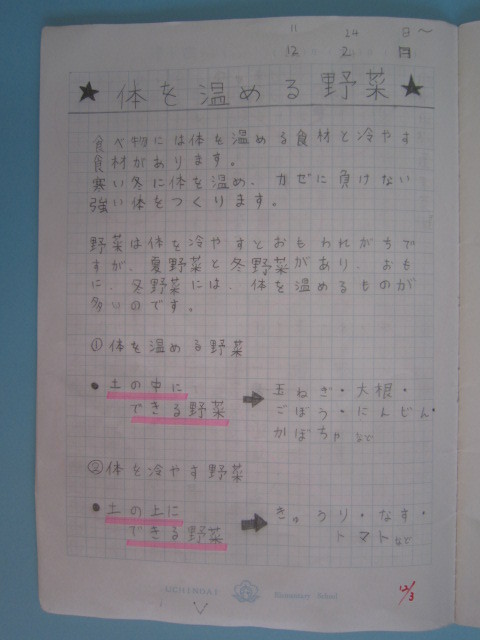 11 24 日〜
12 2 日
★ 体を温める野菜 ★
食べ物には体を温める食材と冷やす
食材があります。
寒い冬に体を温め、カゼに負けない
強い体をつくります。
野菜は体を冷やすとおもわれがちで
すが、夏野菜と冬野菜があり、おも
に、冬野菜には、体を温めるものが
多いのです。
①体を温める野菜
●土の中に
できる野菜
➡ 玉ねぎ・大根・
ごぼう・にんじん・
かぼちゃなど
②体を冷やす野菜
●土の上に
できる野菜
➡ きゅうり・なす・
トマトなど
12/3